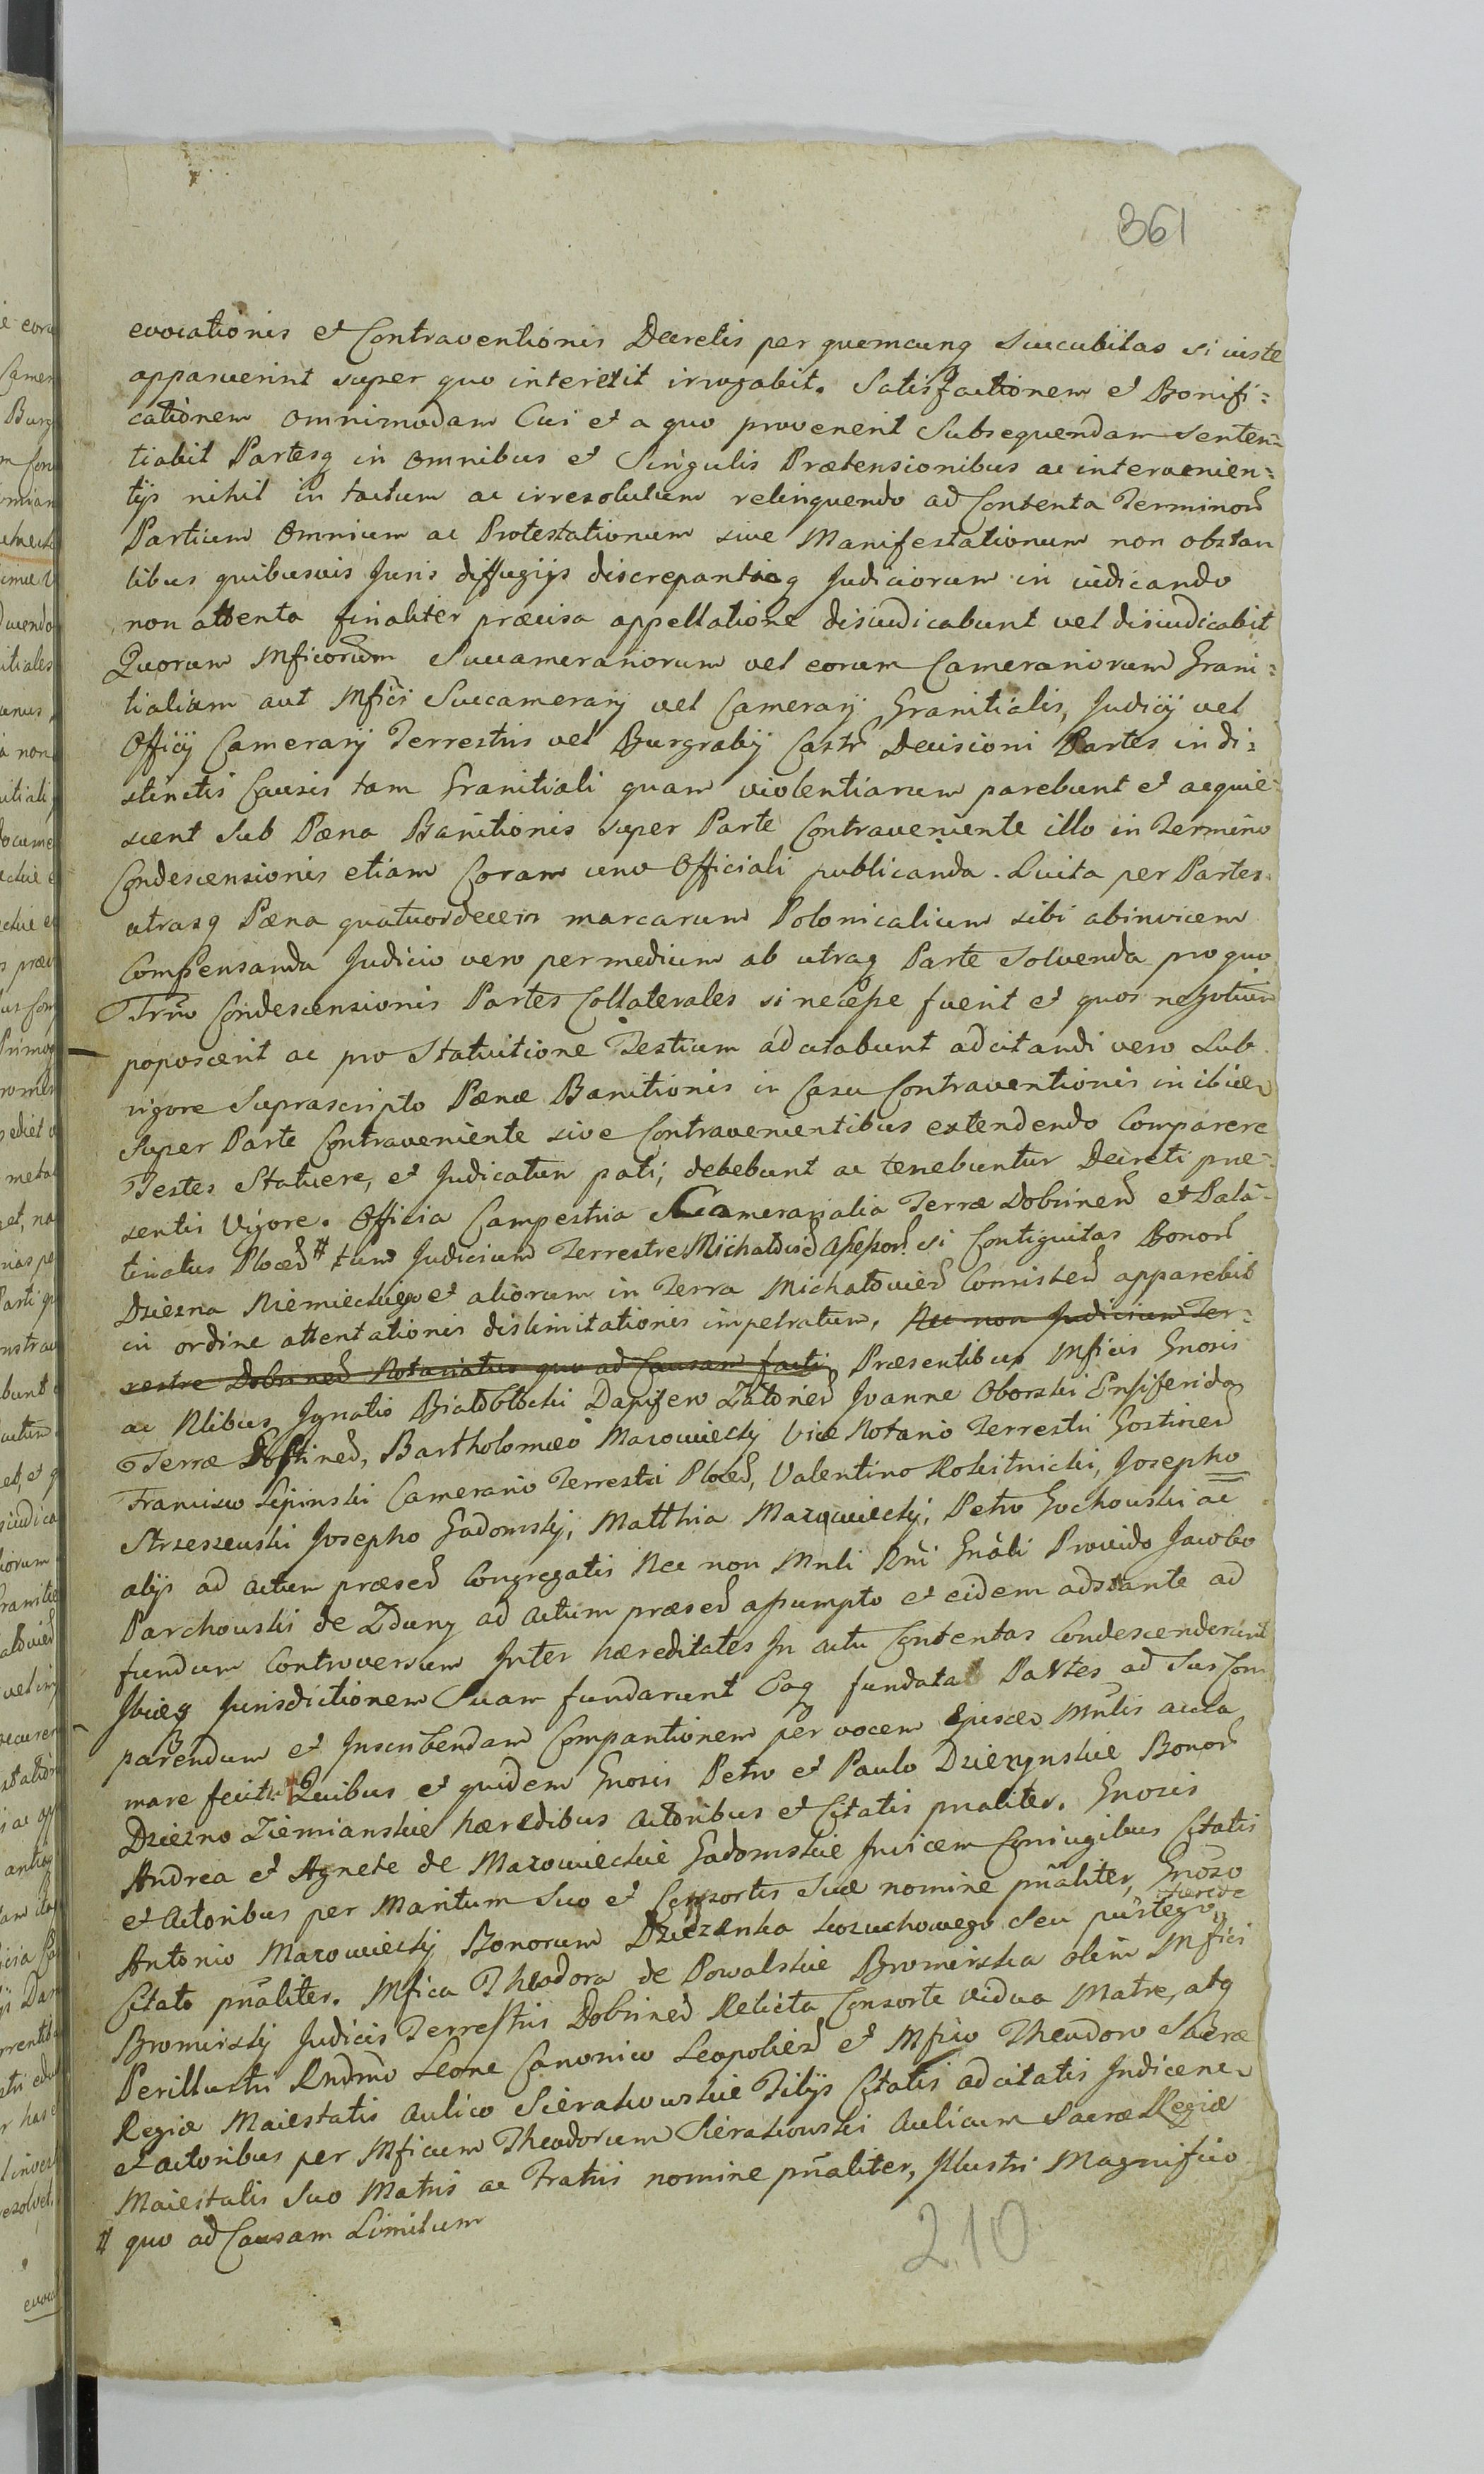 361
evocationis et Contraventionis Decretis per quemcunq Succubitas si iuste
apparuerint super quo intererit irrogabit. Satisfactionem et Bonifi:
cationem omnimodam Cui et a quo provenerit Subsequendam senten:
tiabit Partesq in omnibus et Singulis Prætensionibus ac intervenien:
tijs nihil in tactum ac irresolutum relinquendo ad Contenta Terminor
Partium Omnium ac Protestationum sive Manifestationum non obstan
tibus quibusvis Juris diffugijs discrepantiaq Judiciorum in iudicando
non attenta finaliter præcisa appellatione disiudicabunt vel disiudicabit
Quorum Mficorum Succamerariorum vel eorum Camerariorum Grani:
tialium aut Mfici Succamerarij vel Camerarij Granitialis, Judicij vel
Officij Camerarij Terrestris vel Burgrabij Castr Decisioni Partes in di:
stinctis Causis tam Granitiali quam violentiarum parebunt et acquie:
scent Sub Pæna Banitionis super Parte Contraveniente illo in Termino
Condescensionis etiam Coram uno Officiali publicanda. Luita per Partes
utrasq Pæna quatuordecem marcarum Polonicalium sibi abinvicem
Compensanda Judicio vero per medium ab utraq Parte Solvenda pro quo
Trno Condescensionis Partes Collaterales si necesse fuerit et quos negotium
poposcerit ac pro Statuitione Testium adcitabunt adcitandi vero Sub
vigore Suprascripto Pænæ Banitionis in Casu Contraventionis inibiem
Super Parte Contraveniente sive Contravenientibus extendendo Comparere
Testes Statuere, et Judicatum pati, debebunt ac tenebuntur Decreti præ:
sentis Vigore. Officia Campestria SCameralia Terræ Dobrinen et Pala:
tinatus Plocen # tum Judicium Terrestre Michalovien Assessor. si Contiguitas Bonor
Dziezna Niemieckiego et aliorum in Terra Michalovien Consisten apparebit
in ordine attentationis dislimitationis impetratum. Nec non Judicium Ter:
restre Dobrinen Notariatus quo ad Causam facti, Præsentibus Mficis Gnosis
ac Nlibus Ignatio Białobłocki Dapifero Zatorien Joanne Oborski Ensiferida
Terræ Gostinen, Bartholomæo Mazowiecky Vice Notario Terrestri Gostinen
Francisco Lipinski Camerario Terrestri Plocen, Valentino Rokitnicki, Josepho
Strzeszewski Josepho Gadomskij, Matthia Mazowieckij, Petro Gochowski ac
alijs ad actum præsen Congregatis Nec non Mnli Rni Gnali Provido Jacobo
Parchowski de Zduny ad actum præsen assumpto et eidem adstante ad
fundum Controversum Inter hæreditates In actu Contentas Condescenderunt
Ibieq Jurisdictionem Suam fundarunt Eaq fundata Partes ad Jus Com
parendum et Inscribendam Comparitionem per vocem Ejusdem Mnlis accla
mare fecit. Quibus et quidem Gnosis Petro et Paulo Dziezynskie Bonor
Dziezno Ziemianskie hæredibus Actoribus et Citatis pnaliter. Gnosis
Andrea et Agnete de Mazowieckie Gadomskie Invicem Coniugibus Citatis
et Actoribus per Maritum Suo et Consortis Suæ nomine pnaliter, Gnoso
Antonio Mazowieckij Bonorum Dziezenka Kozuchowego Seu pustego hærede
Citato pnaliter. Mfica Theodora de Powalskie Bromirska olim Mfici
Bromirskij Judicis Terrestris Dobrinen Relicta Consorte vidua Matre, atq
Perillustri Rndmo Leone Canonico Leopolien et Mfico Theodoro Sacræ
Regiæ Maiestatis Aulico Sierakowskie Filijs Citatis adcitatis Indicenen
et actoribus per Mficum Theodorum Sierakowski Aulicum Sacræ Regiæ
Maiestatis Suo Matris ac Fratris nomine pnaliter, Illustri Magnifico
# quo ad Causam Limitum
210